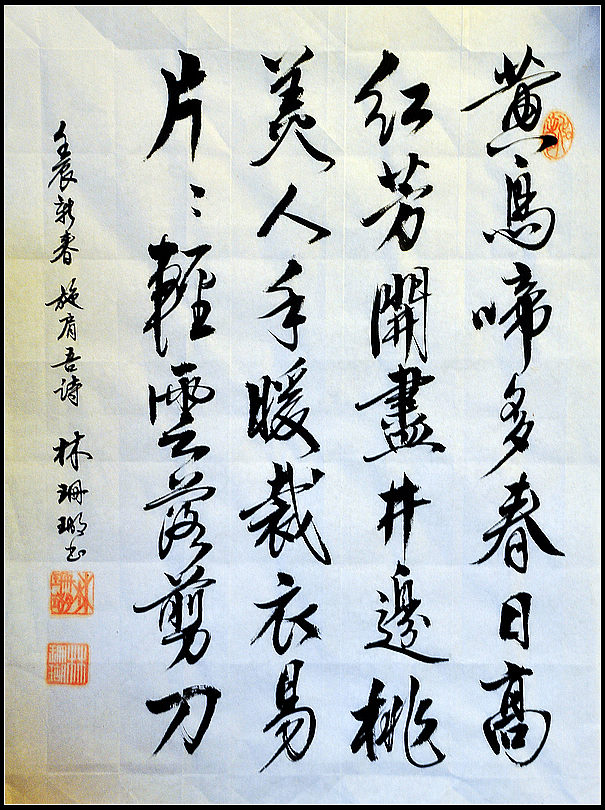 黄鳥啼多春日高
紅芳開盡井邊桃
美人手暖裁衣易
片〻輕雲落剪刀
壬辰新春 施肩吾詩 林珊瑚书